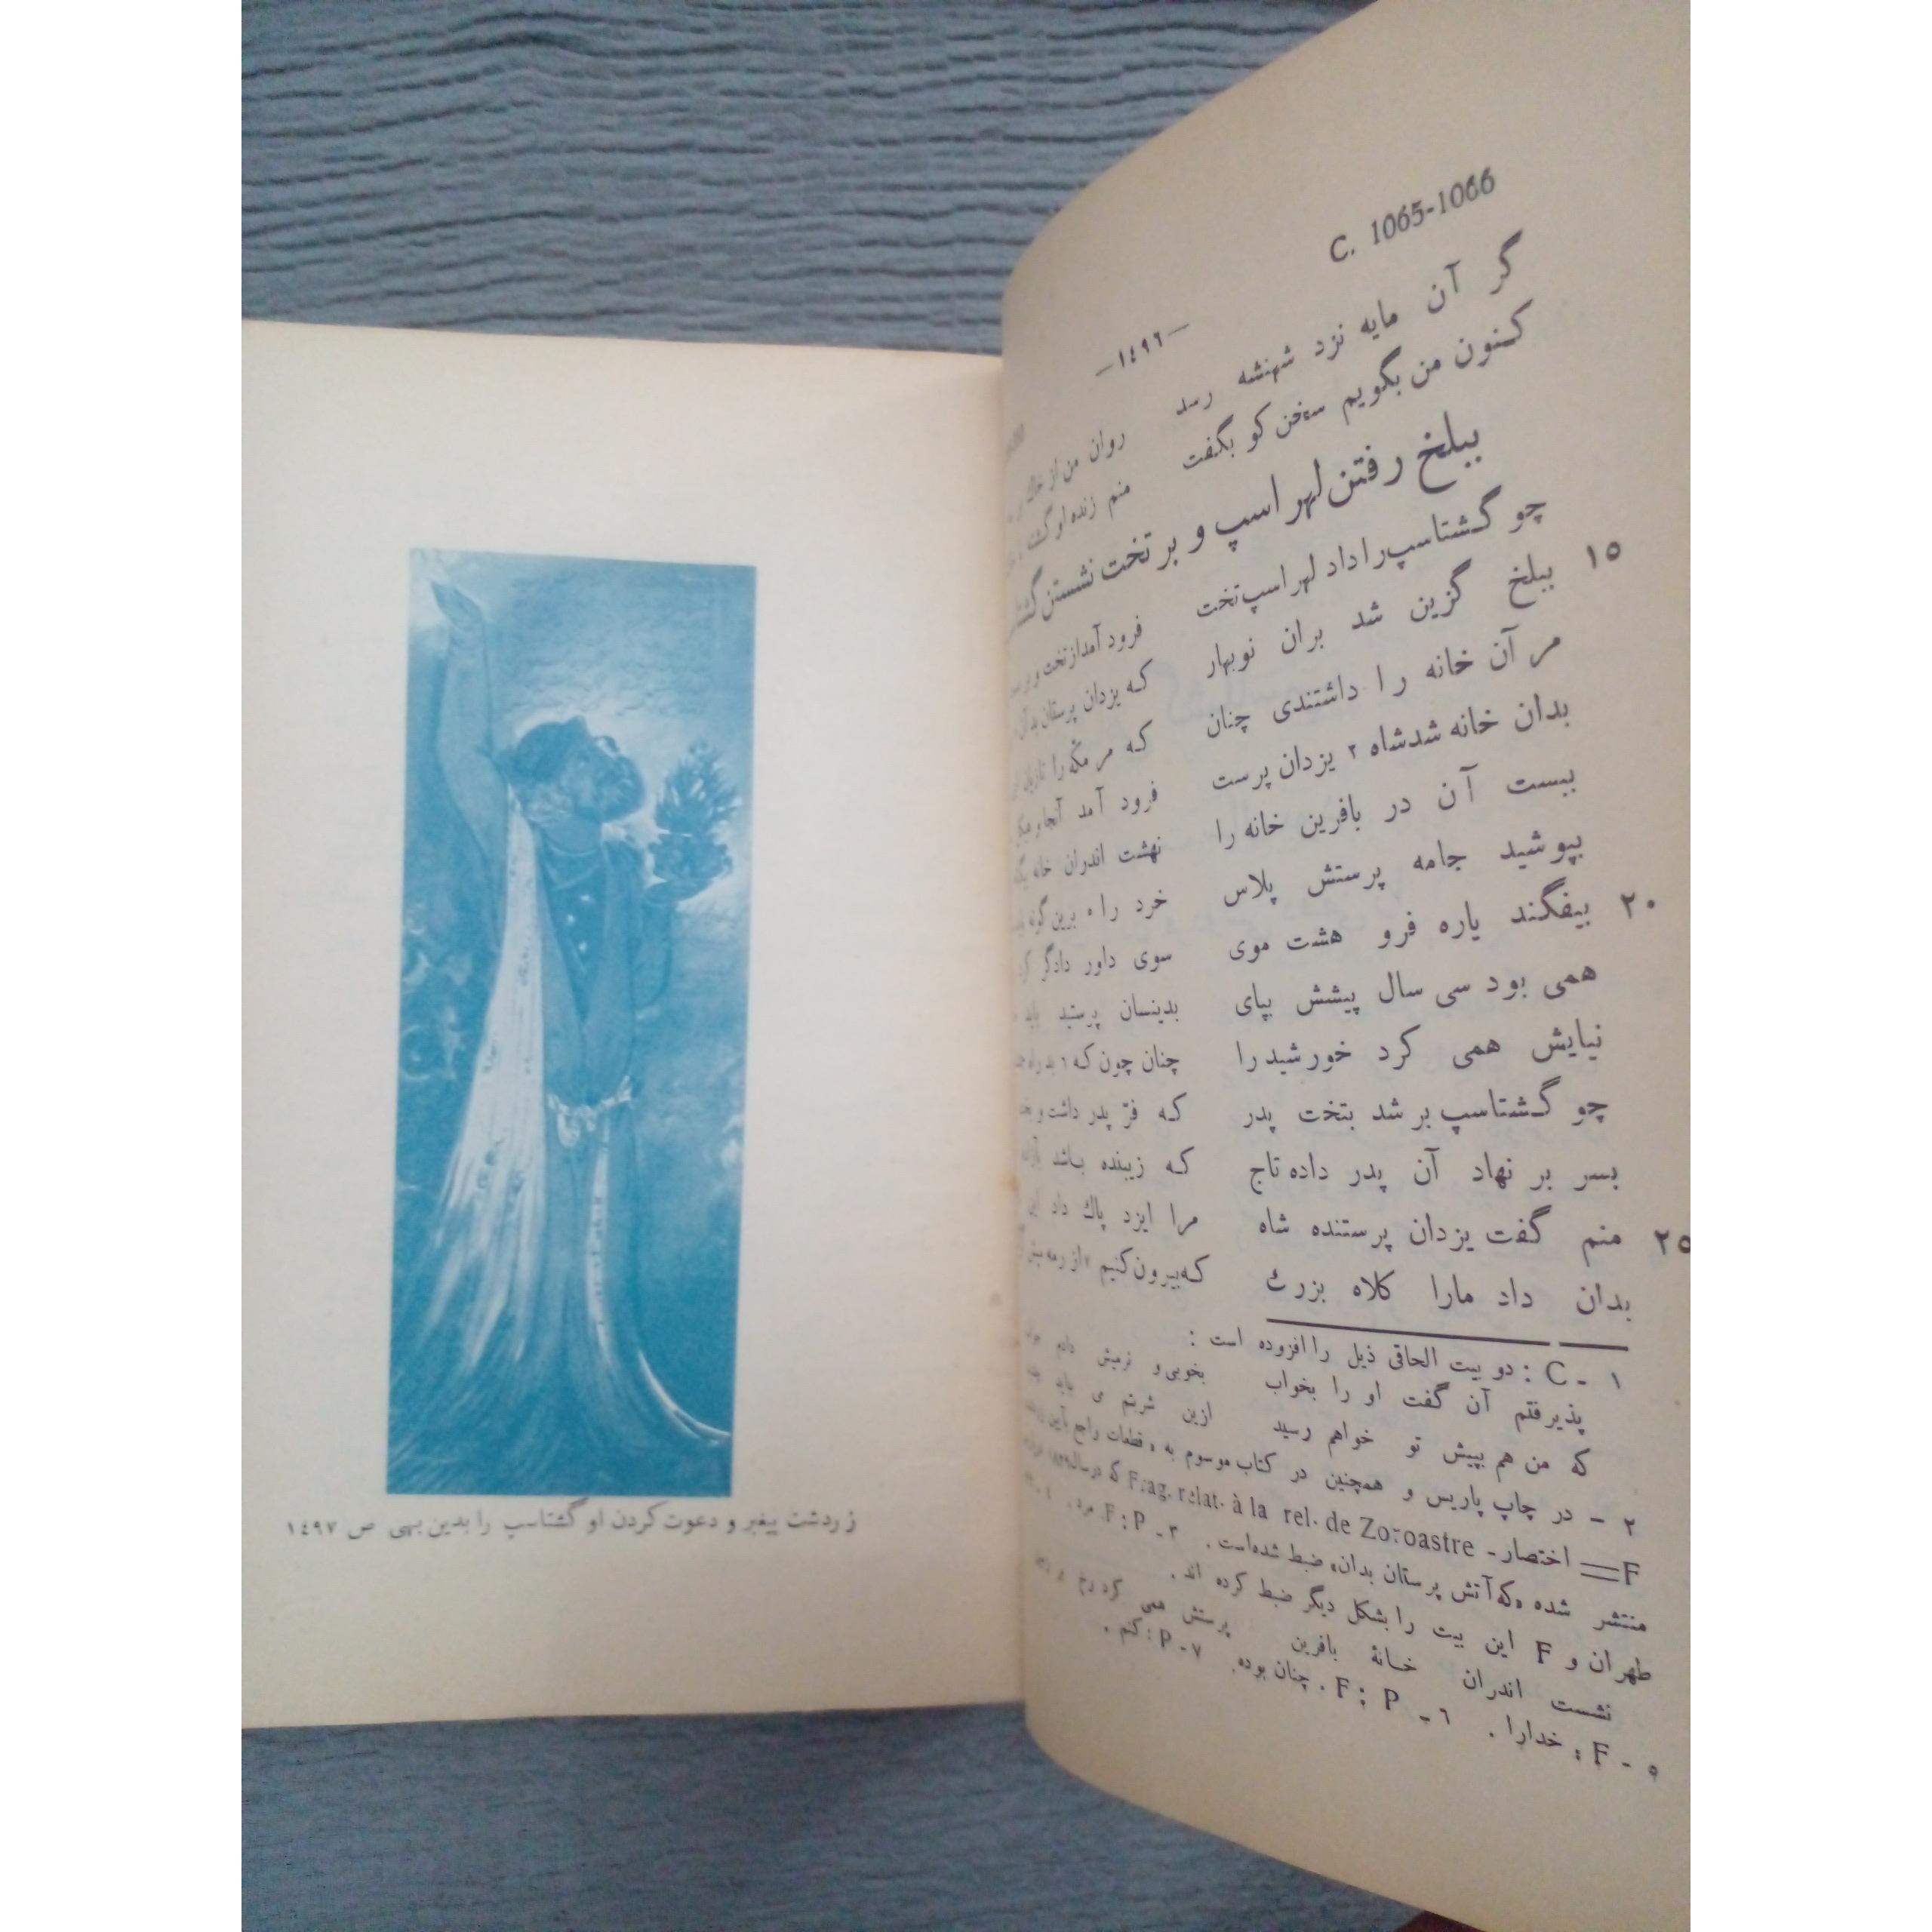 C. 1065-1066
—١٤٩٦—
گر آن مایه نزد شهنشه رسد روان من از خاك
کنون من بگویم سخن کو بگفت منم زنده او گشته
ببلخ رفتن لهراسپ و بر تخت نشستن
چو گشتاسپ را داد لهراسپ تخت فرود آمد از تخت و
١٥ ببلخ گزین شد بران نوبهار که یزدان پرستان بدآن
مر آن خانه را داشتندی چنان که مر مکّه را تازیان
بدان خانه شد شاه ٢ یزدان پرست فرود آمد آنجا و
ببست آن در بآفرین خانه را نهشت اندران خانه
بپوشید جامه پرستش پلاس خرد را ٥ برین گونه
٢٠ بیفگند یاره فرو هشت موی سوی داور دادگر
همی بود سی سال پیشش بپای بدینسان پرستید باید
نیایش همی کرد خورشید را چنان چون که ٦ بد راه
چو گشتاسپ بر شد بتخت پدر که فرّ پدر داشت و
بسر بر نهاد آن پدر داده تاج که زیبنده باشد
٢٥ منم گفت یزدان پرستنده شاه مرا ایزد پاك داد این
بدان داد مارا کلاه بزرك که بیرون کنیم ٧ از رمه میش
١ - C : دو بیت الحاقی ذیل را افزوده است :
پذیرفتم آن گفت او را بخواب بخوبی و نرمیش دادم
که من هم بپیش تو خواهم رسید ازین شربتم می بباید
٢ - در چاپ پاریس و همچنین در کتاب موسوم به « قطعات راجع بآیین
F = اختصار - Frag. relat. à la rel. de Zoroastre که در سال
منتشر شده «که آتش پرستان بدان» ضبط شده است . ٣ - F ; P مرد . ٤ -
طهران و F این بیت را بشکل دیگر ضبط کرده اند .
نشست اندران خانهٔ بافرین پرستش همی کرد رخ بر
٥ - F : خدارا . ٦ - F ; P . چنان بوده. ٧ - P : کنم .
زردشت پیغبر و دعوت کردن او گشتاسپ را بدین بهی ص ١٤٩٧